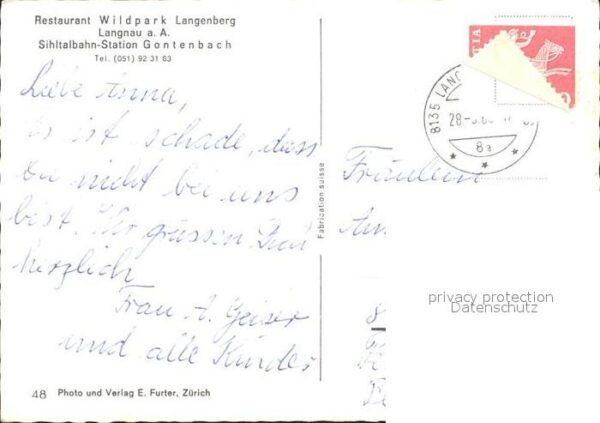 Restaurant Wildpark Langenberg
Langnau a. A.
Sihltalbahn-Station Gontenbach
Tel. (051) 92 31 83
Liebe Anna,
Es ist schade, dass
Du nicht bei uns
bist. Wir grüssen Dich
herzlich
Frau A. Geiser
und alle Kinder
48 Photo und Verlag E. Furter, Zürich
Fabrication suisse
TIA
8135 LANG
28-
8a
Fräulein
An
8
privacy protection
Datenschutz